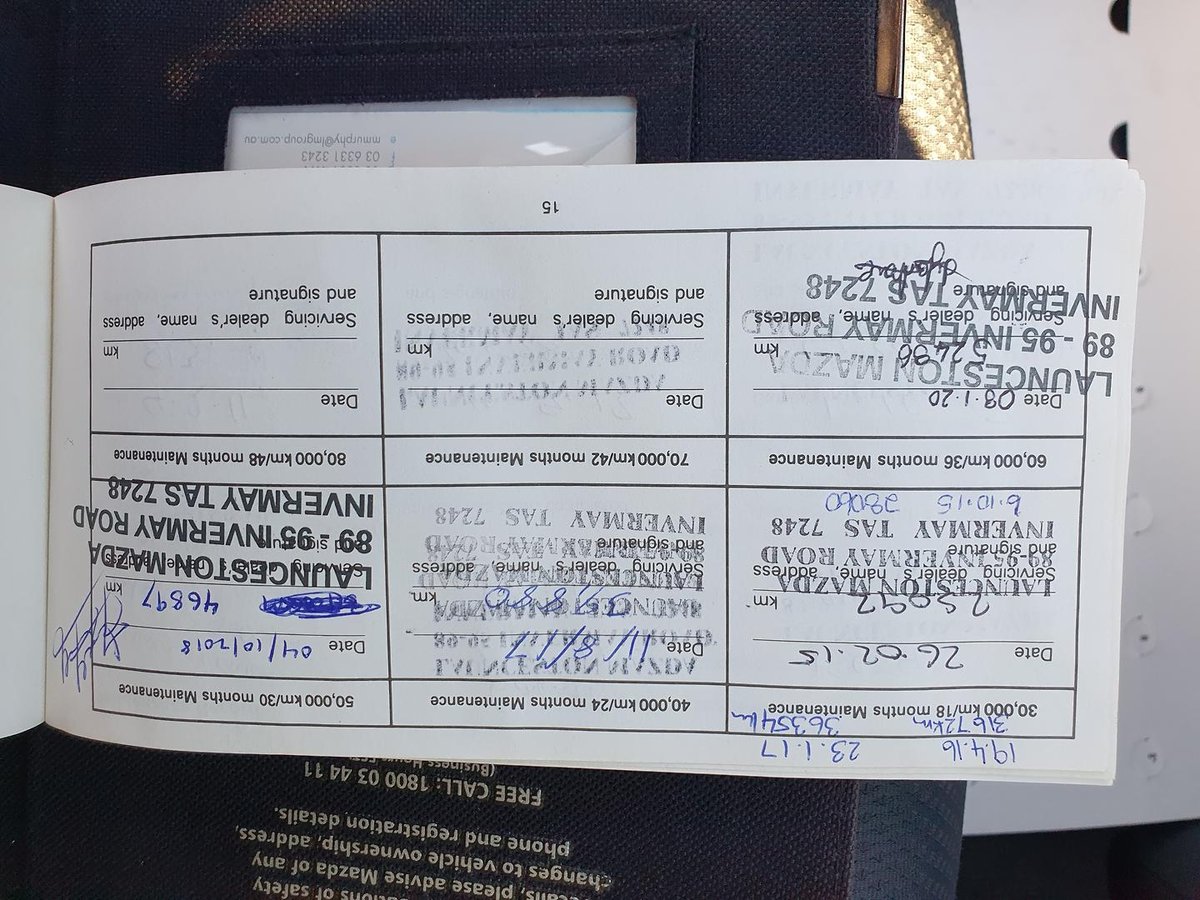 of safety
please advise Mazda of any
changes to vehicle ownership, address,
phone and registration details.
FREE CALL: 1800 03 44 11
(Business Hours
19.4.16 23.1.17
31672km 36354km
30,000 km/18 months Maintenance
Date 26.02.15
km
Servicing dealer's name, address
and signature
LAUNCESTON MAZDA
89-95 INVERMAY ROAD
INVERMAY TAS 7248
6.10.15 28060
40,000 km/24 months Maintenance
Date 11/8/17
km
Servicing dealer's name, address
and signature
LAUNCESTON MAZDA
89-95 INVERMAY ROAD
INVERMAY TAS 7248
50,000 km/30 months Maintenance
Date 04/10/2018
46897 km
Servicing dealer's name, address
and signature
LAUNCESTON MAZDA
89 - 95 INVERMAY ROAD
INVERMAY TAS 7248
60,000 km/36 months Maintenance
Date 03.1.20
52486 km
Servicing dealer's name, address
and signature
LAUNCESTON MAZDA
89 - 95 INVERMAY ROAD
INVERMAY TAS 7248
70,000 km/42 months Maintenance
Date
km
Servicing dealer's name, address
and signature
80,000 km/48 months Maintenance
Date
km
Servicing dealer's name, address
and signature
15
03 6331 3243
e mmurphy@lmgroup.com.au